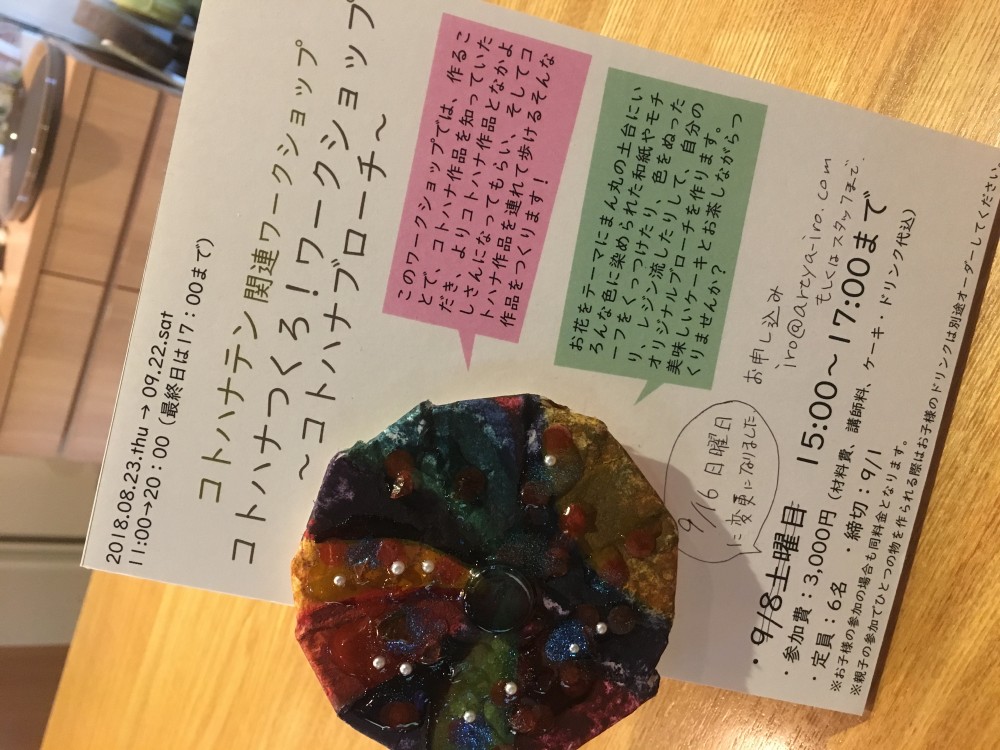 2018.08.23.thu → 09.22.sat
11:00→20:00(最終日は17:00まで)
コトハナテン関連ワークショップ
コトハナつくろ！ワークショップ
～コトハナブローチ～
このワークショップでは、作るこ
とで、コトハナ作品を知っていた
だき、よりコトハナ作品となかよ
しさんになってもらい、そしてコ
トハナ作品を連れて歩けるそんな
作品をつくります！
お花をテーマにまん丸の土台にい
ろんな色に染められた和紙やモチ
ーフをくっつけたり、色をぬった
り、レジン流したりして、自分の
オリジナルブローチを作ります。
美味しいケーキとお茶しながらつ
くりませんか？
お申し込み
iro@artya-iro.com
もしくはスタッフまで.
9/16 日曜日
に変更になりました
・9/8土曜日 15:00～17:00まで
・参加費：3,000円(材料費、講師料、ケーキ・ドリンク代込)
・定員：6名 ・締切：9/1
※お子様の参加の場合も同料金となります。
※親子の参加でひとつの物を作られる際はお子様のドリンクは別途オーダーしてください。